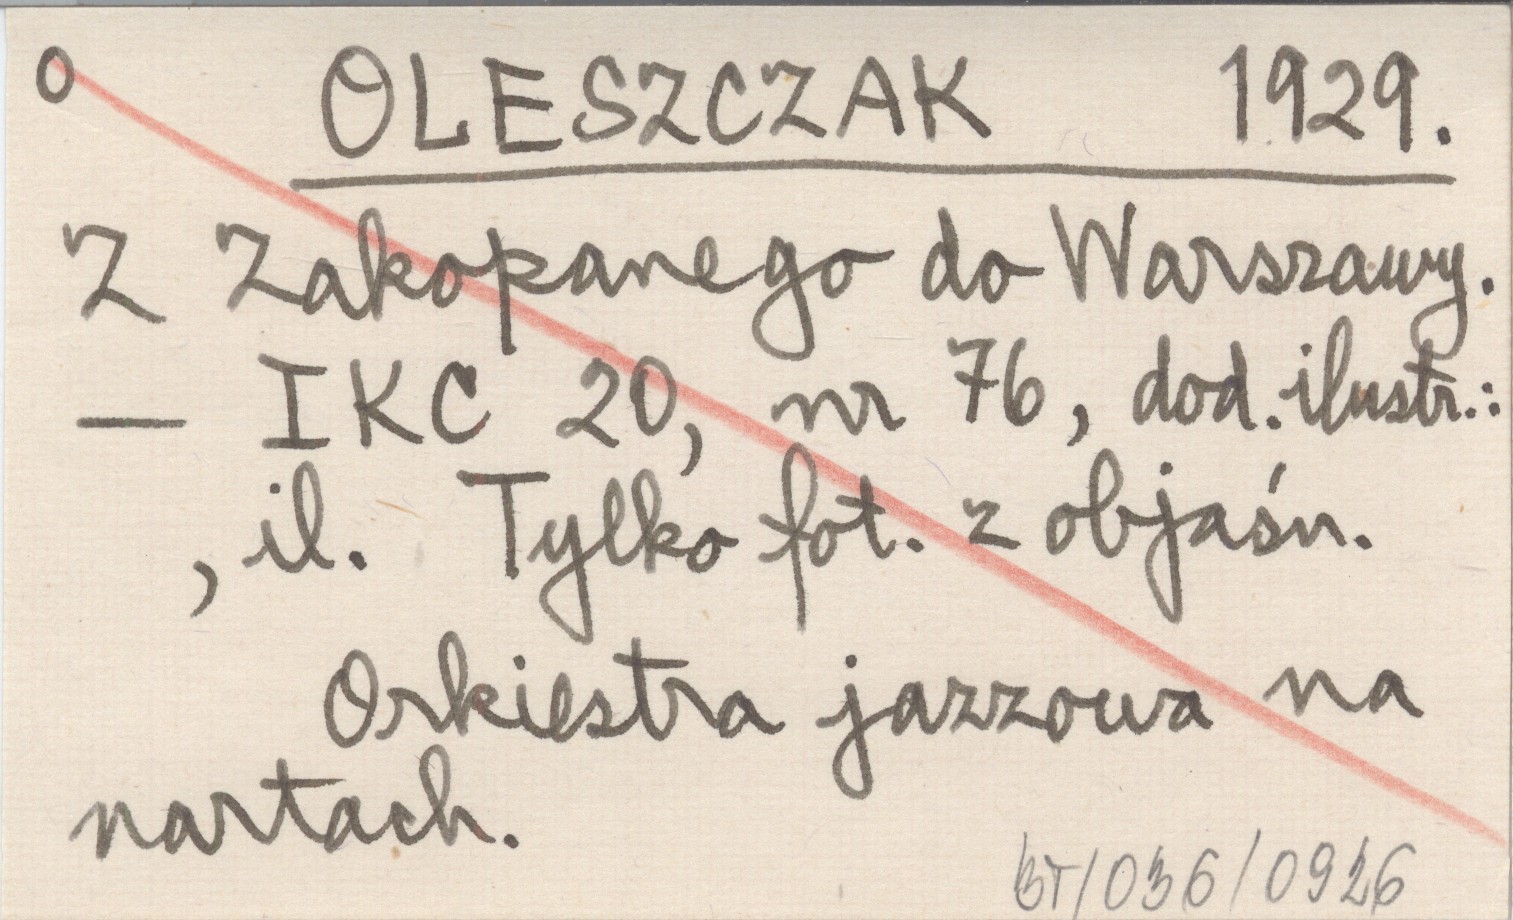 O OLESZCZAK 1929.
Z Zakopanego do Warszawy.
— IKC 20, nr 76, dod. ilustr.:
, il. Tylko fot. z objaśn.
Orkiestra jazzowa na
nartach.
BT/036/0926